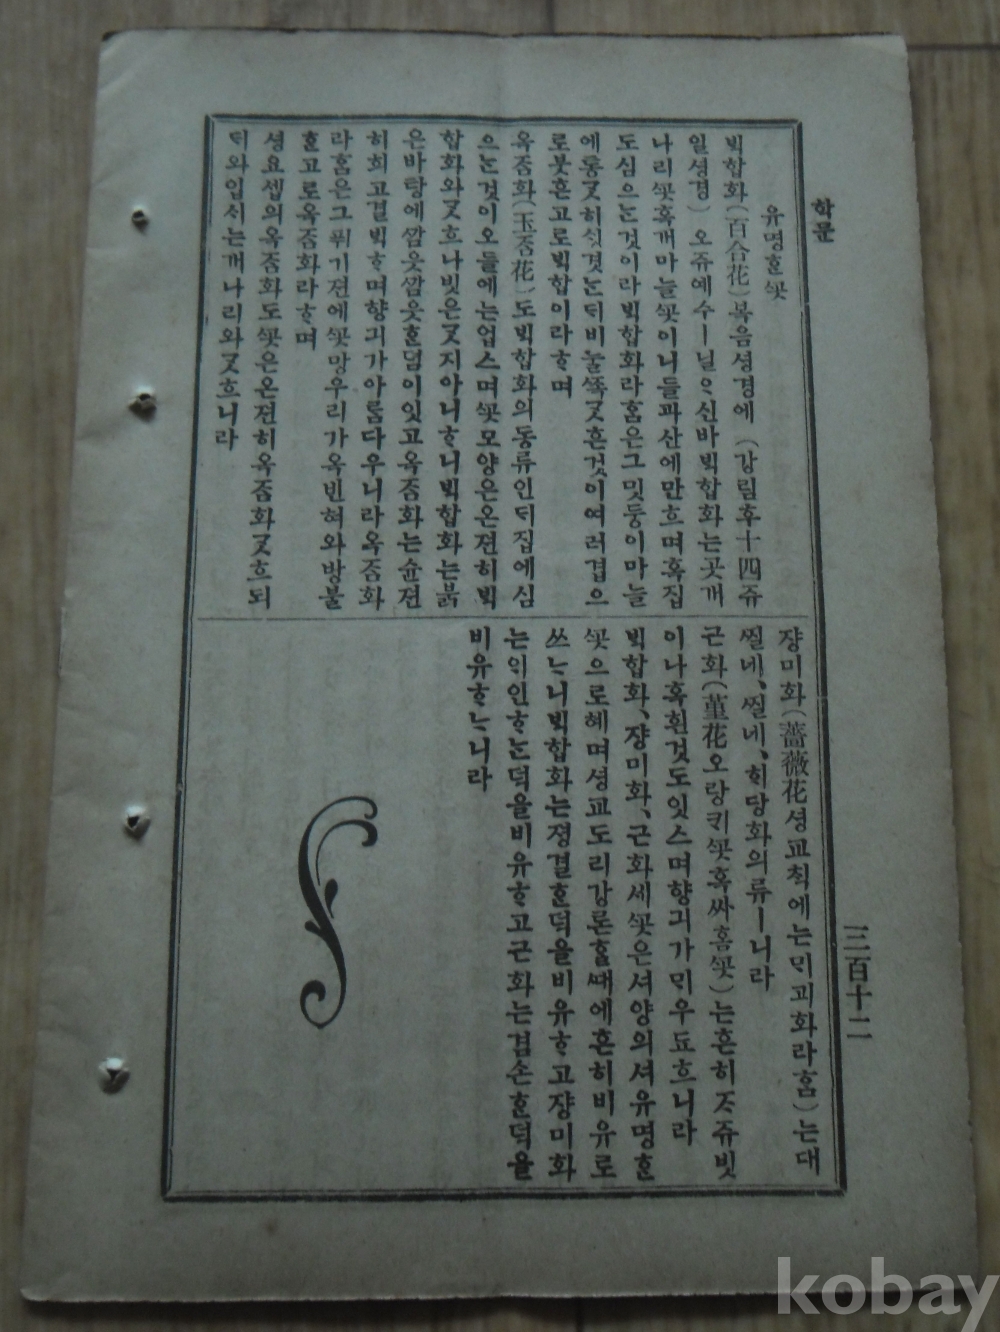 학문
三百十二
유명ᄒᆞᆫᄭᅩᆺ
ᄇᆡᆨ합화(百合花)복음셩경에 (강림후十四쥬
일셩경) 오쥬예수ㅣ닐ᄋᆞ신바ᄇᆡᆨ합화는곳개
나리ᄭᅩᆺ혹개마늘ᄭᅩᆺ이니들과산에만흐며혹집
도심으ᄂᆞᆫ것이라ᄇᆡᆨ합화라홈은그밋둥이마늘
에통ᄀᆞᆺ히싱겻ᄂᆞᆫᄃᆡ비눌ᄶᅩᆨᄀᆞᆺ흔것이여러겹으
로붓흔고로ᄇᆡᆨ합이라ᄒᆞ며
옥줌화(玉좀花)도ᄇᆡᆨ합화의동류인ᄃᆡ집에심
으ᄂᆞᆫ것이오들에는업스며ᄭᅩᆺ모양은온젼히ᄇᆡᆨ
합화와ᄀᆞᆺ흐나빗은ᄀᆞᆺ지아니ᄒᆞ니ᄇᆡᆨ합화는붉
은바탕에ᄭᅡᆷ읏ᄭᅡᆷ읏ᄒᆞᆫ덤이잇고옥줌화는슌젼
히희고결ᄇᆡᆨᄒᆞ며향긔가아름다우니라옥줌화
라홈은그퓌기젼에ᄭᅩᆺ망우리가옥빈혀와방불
ᄒᆞᆫ고로옥줌화라ᄒᆞ며
셩요셉의옥줌화도ᄭᅩᆺ은온젼히옥줌화ᄀᆞᆺ흐되
ᄃᆡ와입시는개나리와ᄀᆞᆺ흐니라
쟝미화(薔薇花셩교ᄎᆡᆨ에는ᄆᆡ괴화라홈)는대
ᄶᅵᆯ네、ᄶᅵᆯ네、ᄒᆡ당화의류ㅣ니라
근화(菫花오랑키ᄭᅩᆺ혹싸홈ᄭᅩᆺ)는흔히ᄌᆞ쥬빗
이나혹흰것도잇스며향긔가ᄆᆡ우됴흐니라
ᄇᆡᆨ합화、쟝미화、근화세ᄭᅩᆺ은셔양의셔유명ᄒᆞᆫ
ᄭᅩᆺ으로혜며셩교도리강론ᄒᆞᆯᄯᅢ에흔히비유로
쓰ᄂᆞ니ᄇᆡᆨ합화는졍결ᄒᆞᆫ덕을비유ᄒᆞ고쟝미화
는ᄋᆡ인ᄒᆞᄂᆞᆫ덕을비유ᄒᆞ고근화는겸손ᄒᆞᆫ덕을
비유ᄒᆞᄂᆞ니라
kobay